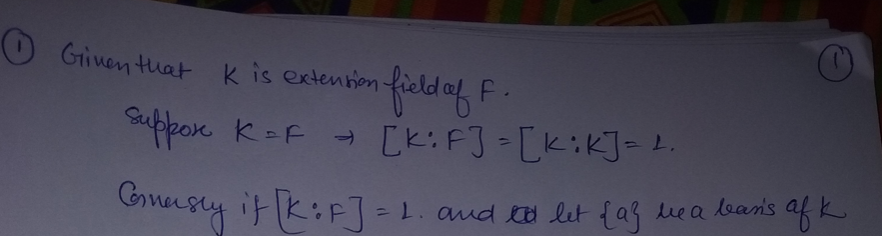 ① Given that K is extension field of F. ①
Suppose K = F → [K:F] = [K:K] = 1.
Conversly if [K:F] = 1. and let {a} be a basis of K